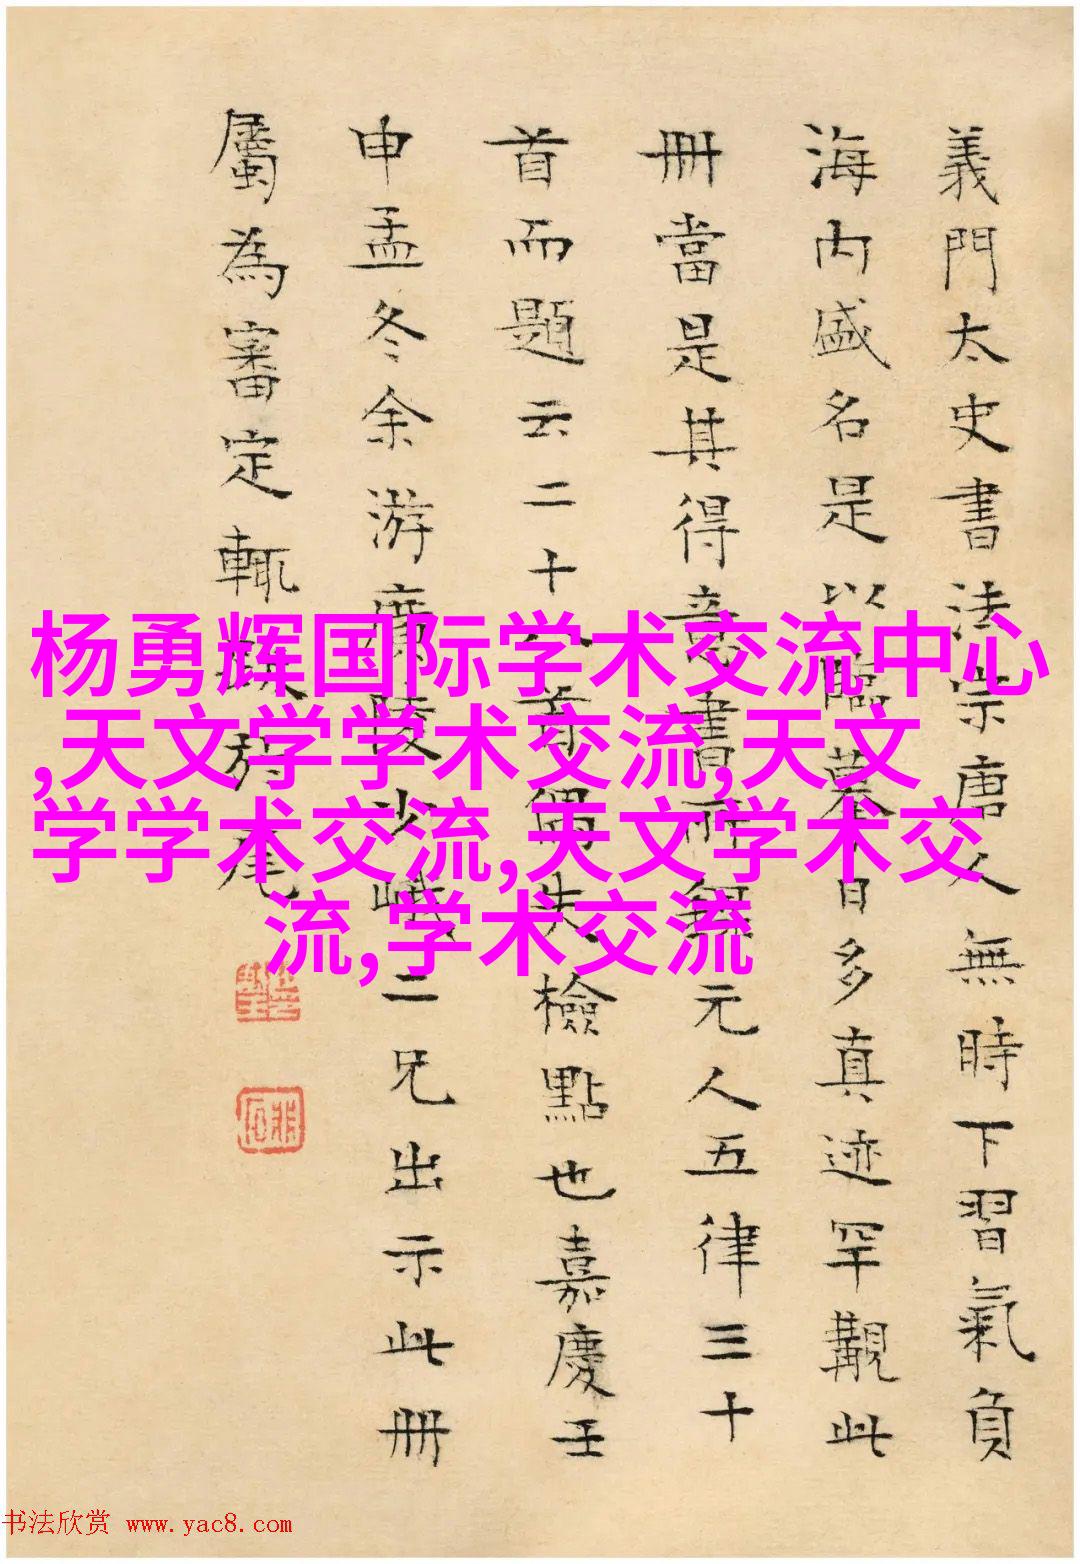 義門太史書法宗唐人無時下習氣負
海内盛名是以臨摹日多真迹罕覯此
冊當是其得意書而錄元人五律三十
首而題云二十八首偶失檢點也嘉慶壬
申孟冬余游廣陵少峨二兄出示此冊
屬為審定輒跋於尾
杨勇辉国际学术交流中心
,天文学学术交流,天文
学学术交流,天文学术交
流,学术交流
书法欣赏 www.yac8.com